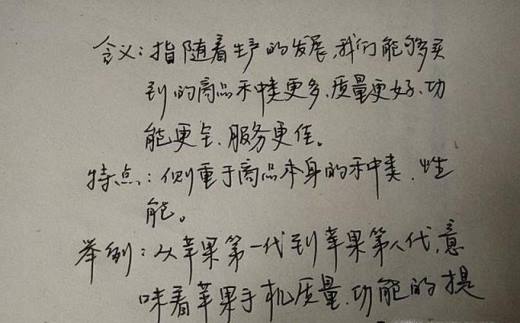 含义：指随着生产的发展，我们能够买
到的商品种类更多、质量更好、功
能更全、服务更佳。
特点：侧重于商品本身的种类、性
能。
举例：从苹果第一代到苹果第八代，意
味着苹果手机质量、功能的提